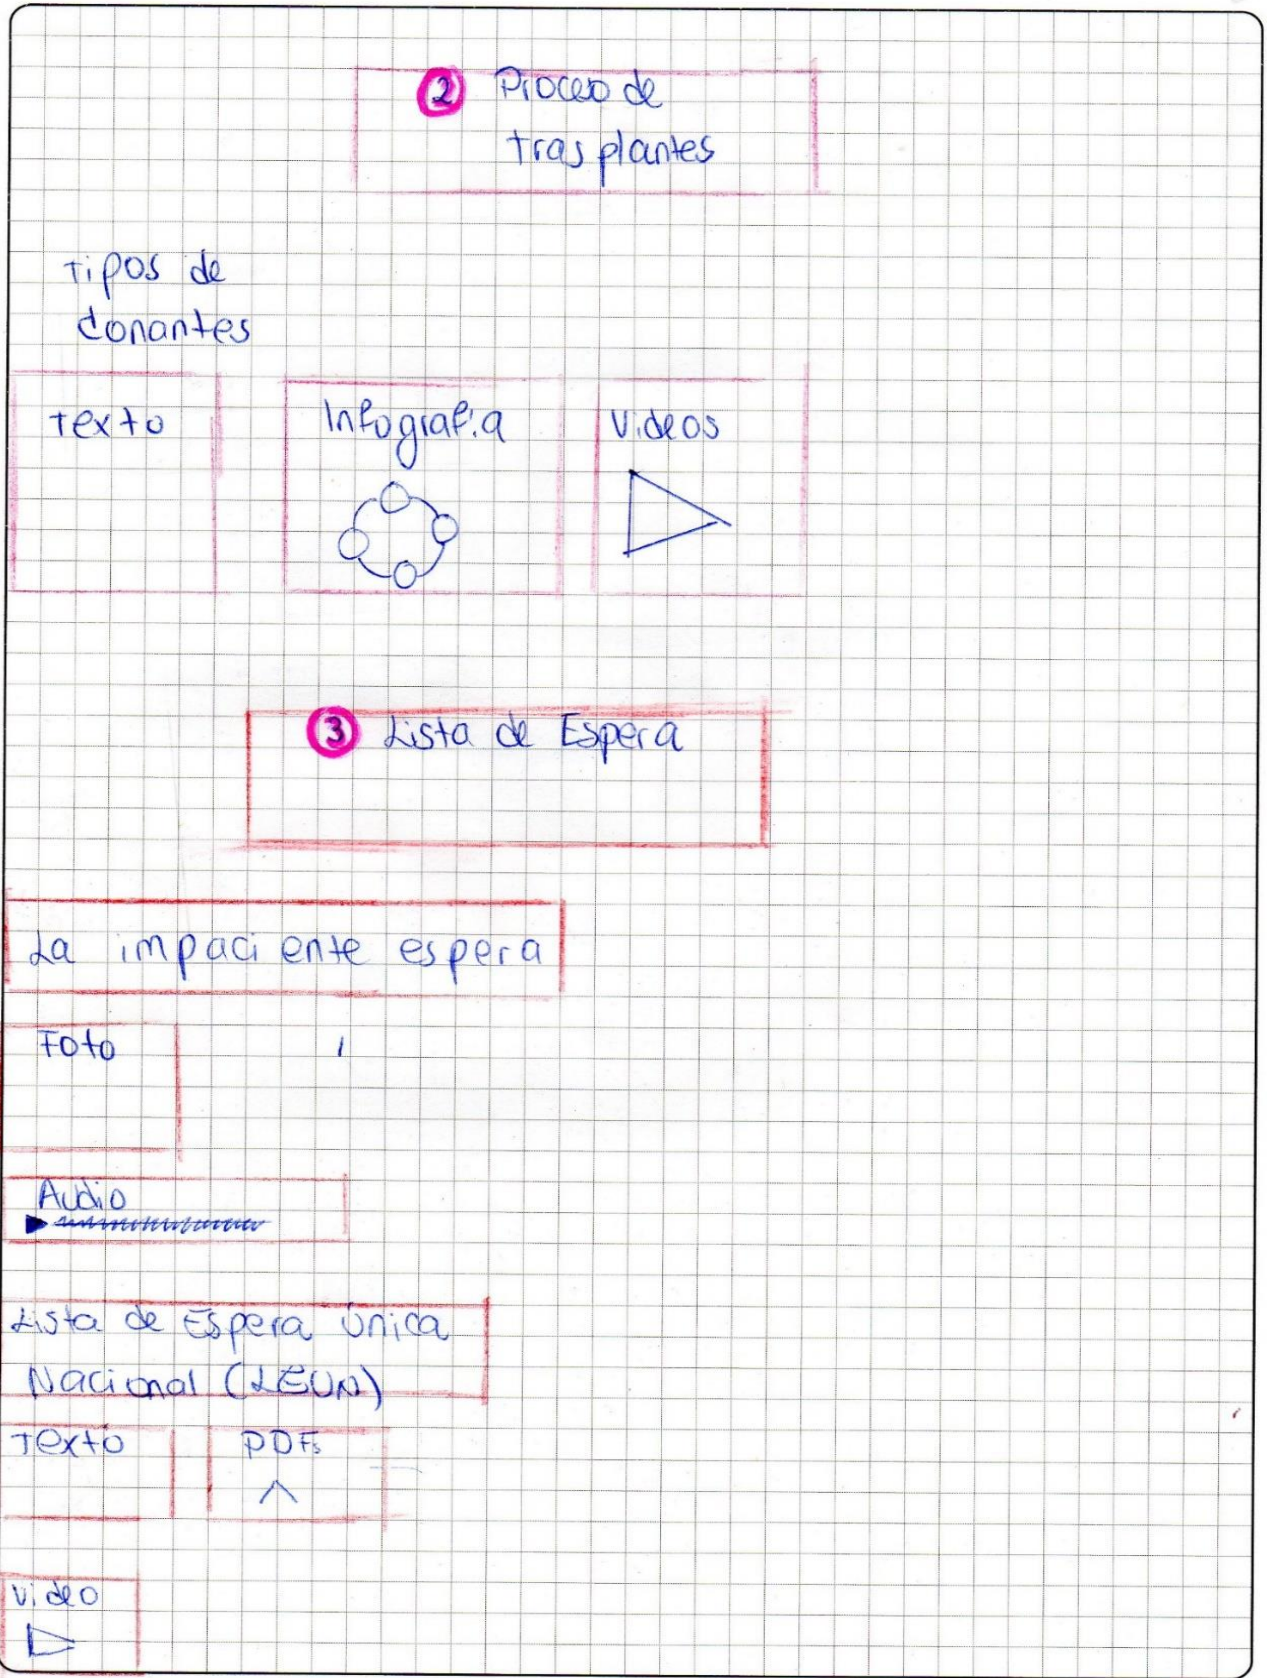 2 Proceso de
trasplantes
Tipos de
donantes
Texto Infografia Videos
3 Lista de Espera
La impaciente espera
Foto
Audio
Lista de Espera Única
Nacional (LEUN)
Texto PDFs
Video